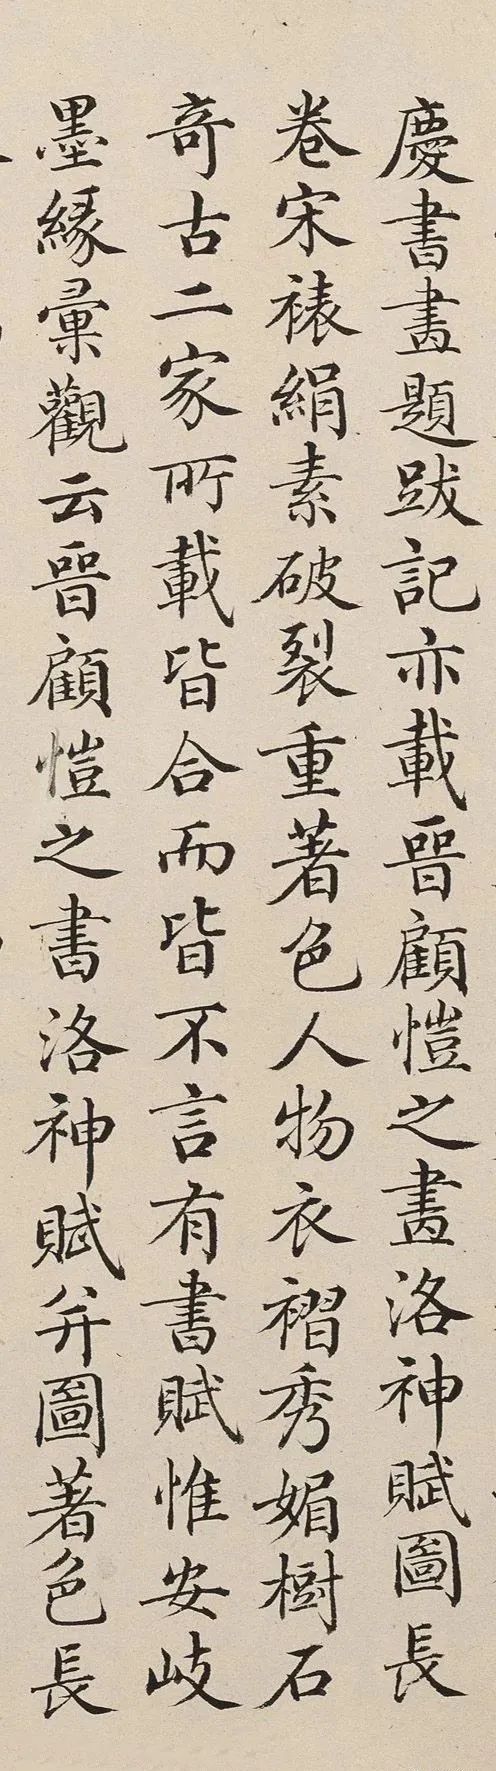 慶書畫題跋記亦載晉顧愷之畫洛神賦圖長
卷宋裱絹素破裂重著色人物衣褶秀媚樹石
奇古二家所載皆合而皆不言有書賦惟安岐
墨緣彙觀云晉顧愷之書洛神賦并圖著色長